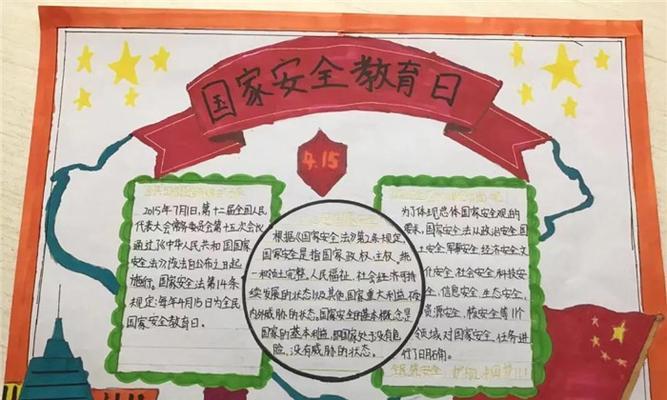 国家安全教育日
4.15
2015年7月1日,第十二届全国人民
代表大会常务委员会第十五次会议
通过《中华人民共和国国家
安全法》该法自公布之日起
施行。国家安全法第14条
规定:每年4月15日为全民
国家安全教育日。
根据《国家安全法》第2条规定,
国家安全是指国家政权、主权、统
一和领土完整、人民福祉、社会经济可持
续发展的状态以及其他国家重大利益
内外威胁的状态。国家安全的基本概念是
国家的基本利益,即国家处于没有危
险、没有威胁的状态。
为了体现总体国家安全观的
要求,国家安全法从政治安全国
土安全、军事安全、经济安全文
化安全、社会安全、科技安
全、信息安全、生态安全、
资源安全、核安全等11个
领域对国家安全任务进
行了明确。